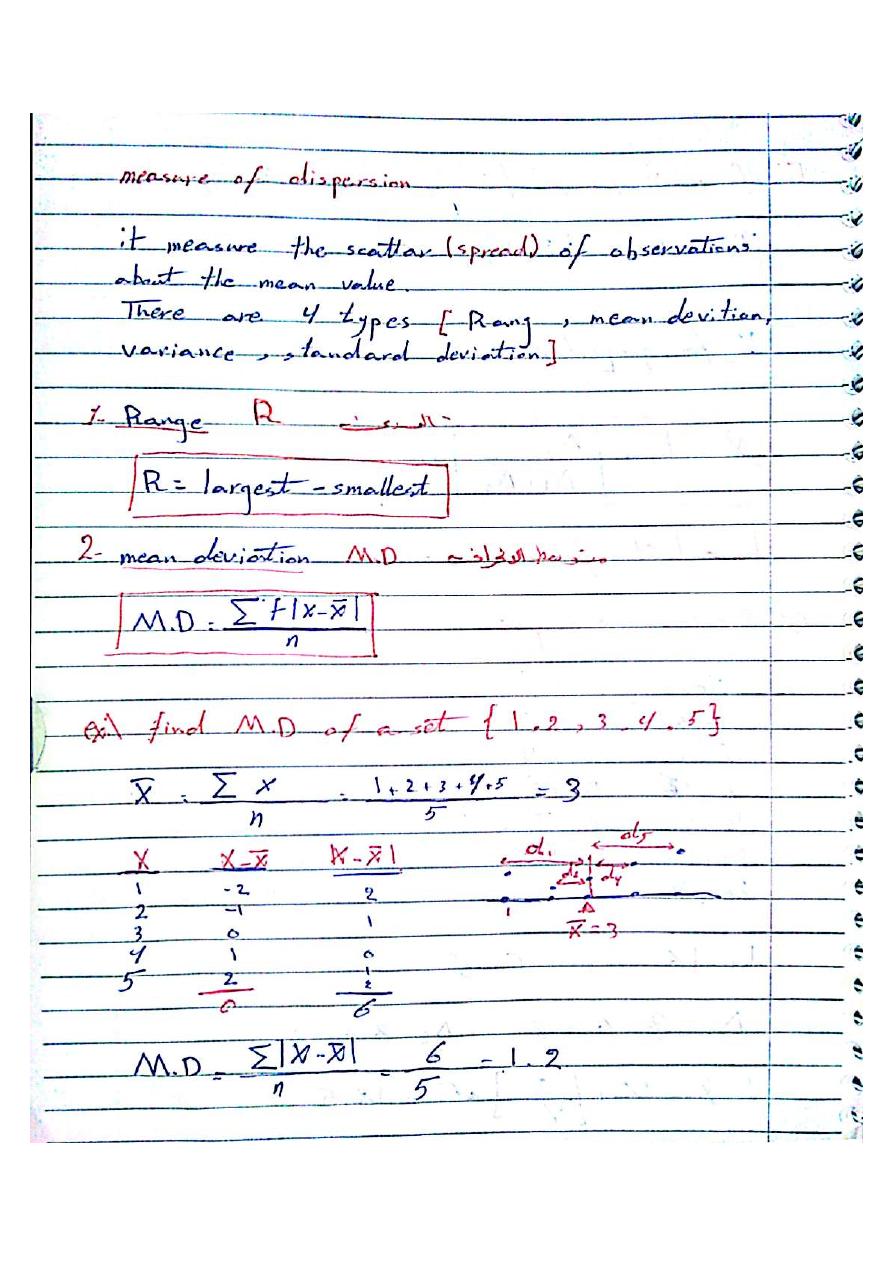 measure of dispersion
it measure the scattar (spread) of observations
about the mean value.
There are 4 types [ Rang , mean devition,
variance , standard deviation ]
1- Range R
R = largest - smallest
2- mean deviation M.D
M.D = Σ f |x - x̄| / n
ex\ find M.D of a set { 1 , 2 , 3 , 4 , 5 }
x̄ = Σ x / n = 1 + 2 + 3 + 4 + 5 / 5 = 3
X X - x̄ |X - x̄|
1 -2 2
2 -1 1
3 0 0
4 1 1
5 2 2
0 6
d₁ d₅
d₂ d₄
1
x̄ = 3
M.D = Σ |X - x̄| / n = 6 / 5 = 1.2